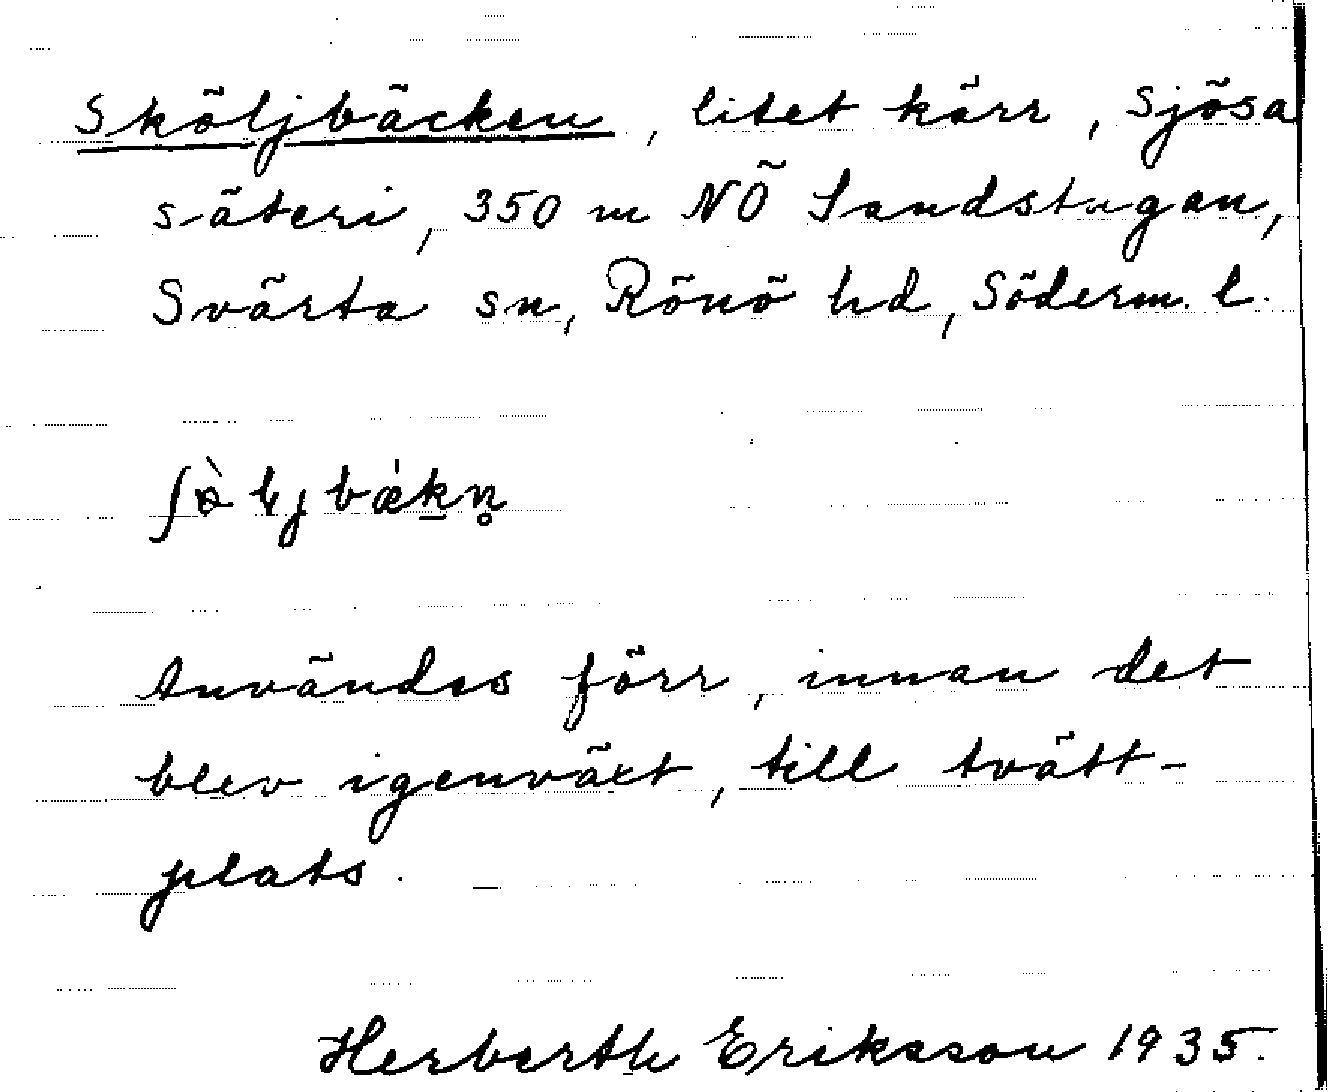 Sköljbäcken, litet kärr, Sjösa
säteri, 350 m NÖ Sandstugan,
Svärta sn, Rönö hd, Söderm. l.
Användes förr, innan det
blev igenväxt, till tvätt-
plats.
Herberth Eriksson 1935.